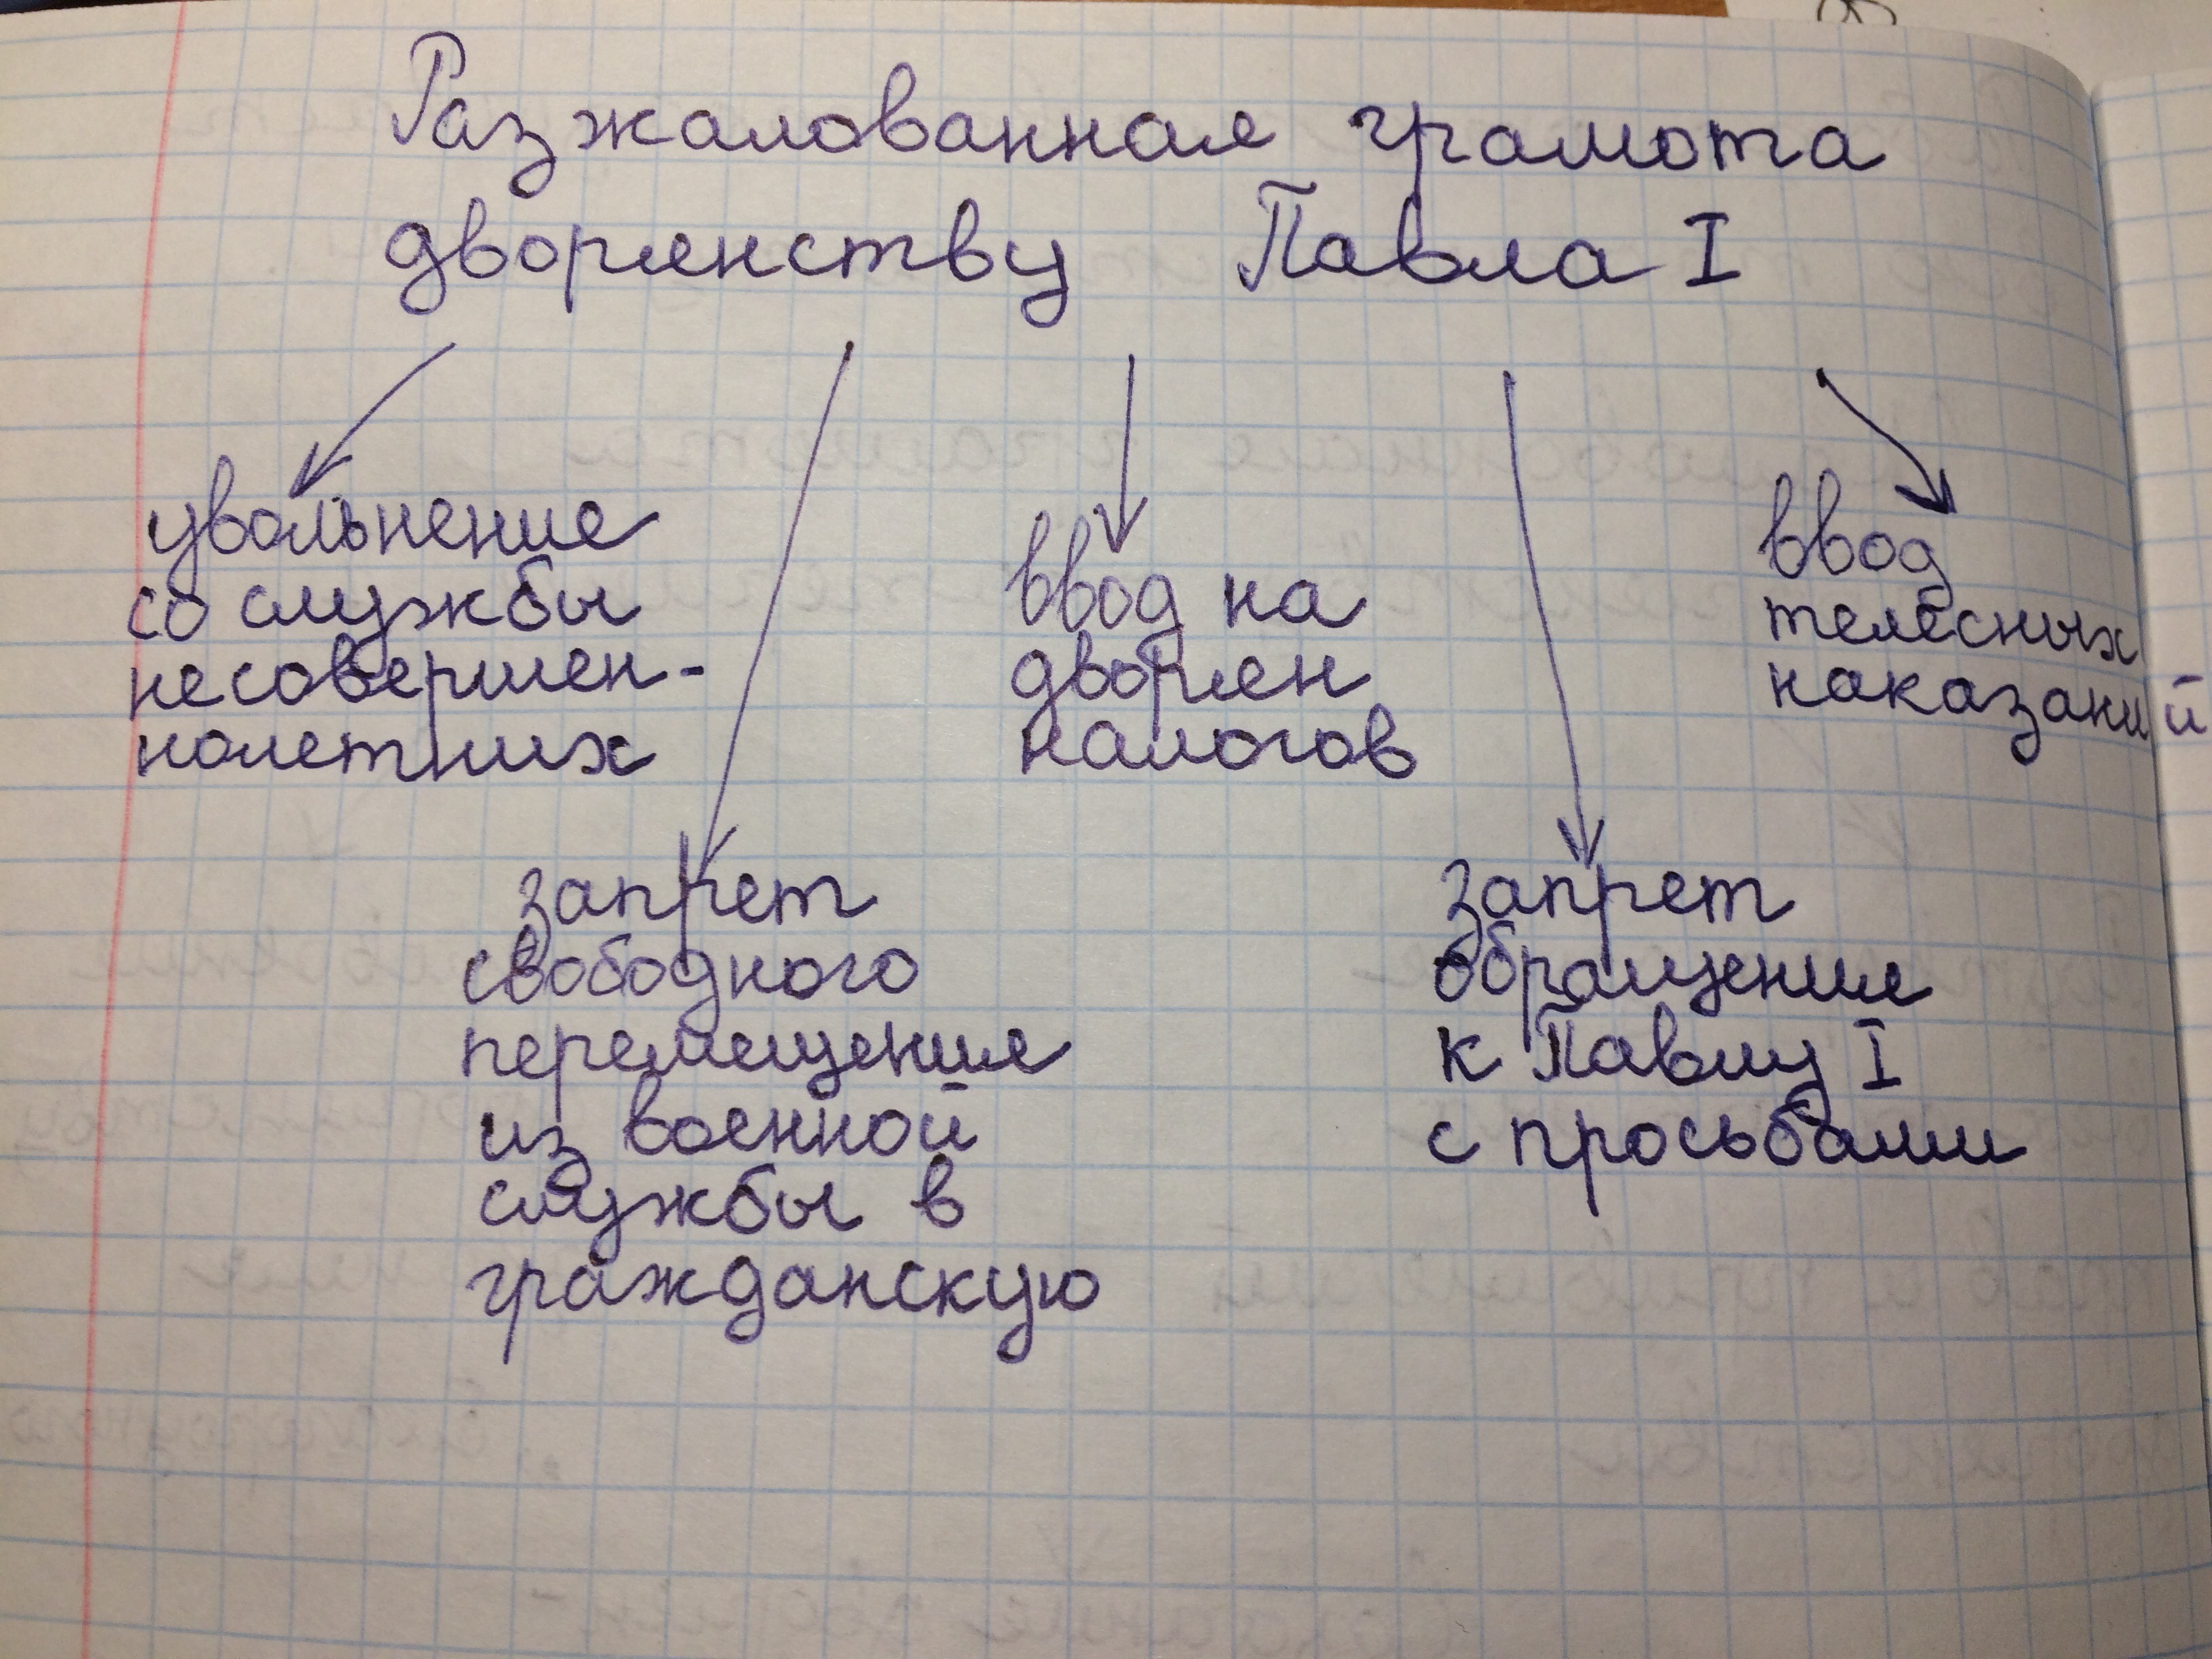 Разжалованная грамота
дворянству Павла I
увольнение
со службы
несовершен-
нолетних
ввод на
дворян
налогов
ввод
телесных
наказаний
запрет
свободного
перемещения
из военной
службы в
гражданскую
запрет
обращения
к Павлу I
с просьбами